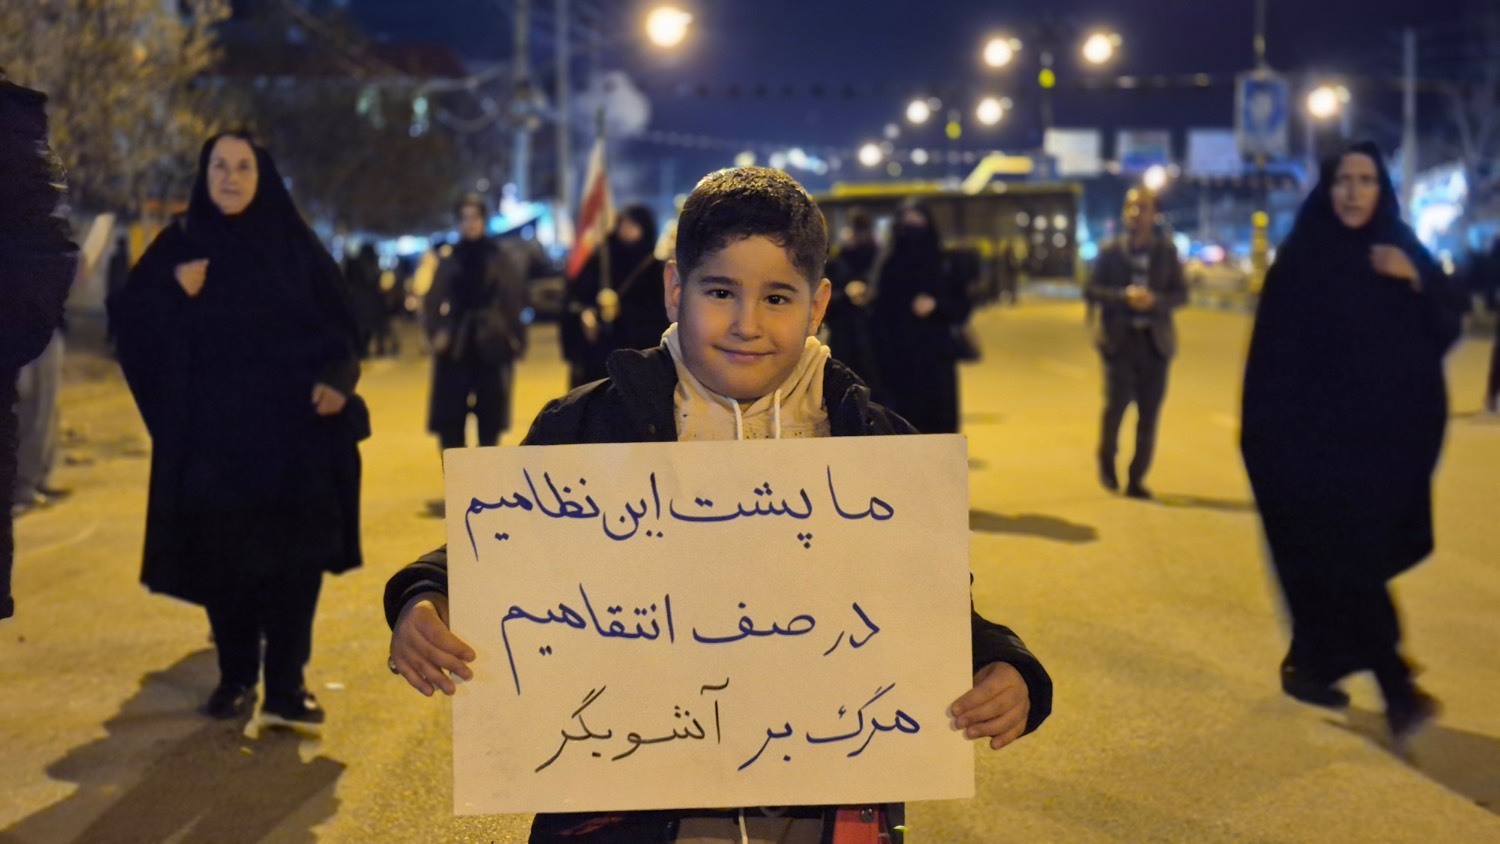 ما پشت این نظامیم
در صف انتقامیم
مرگ بر آشوبگر